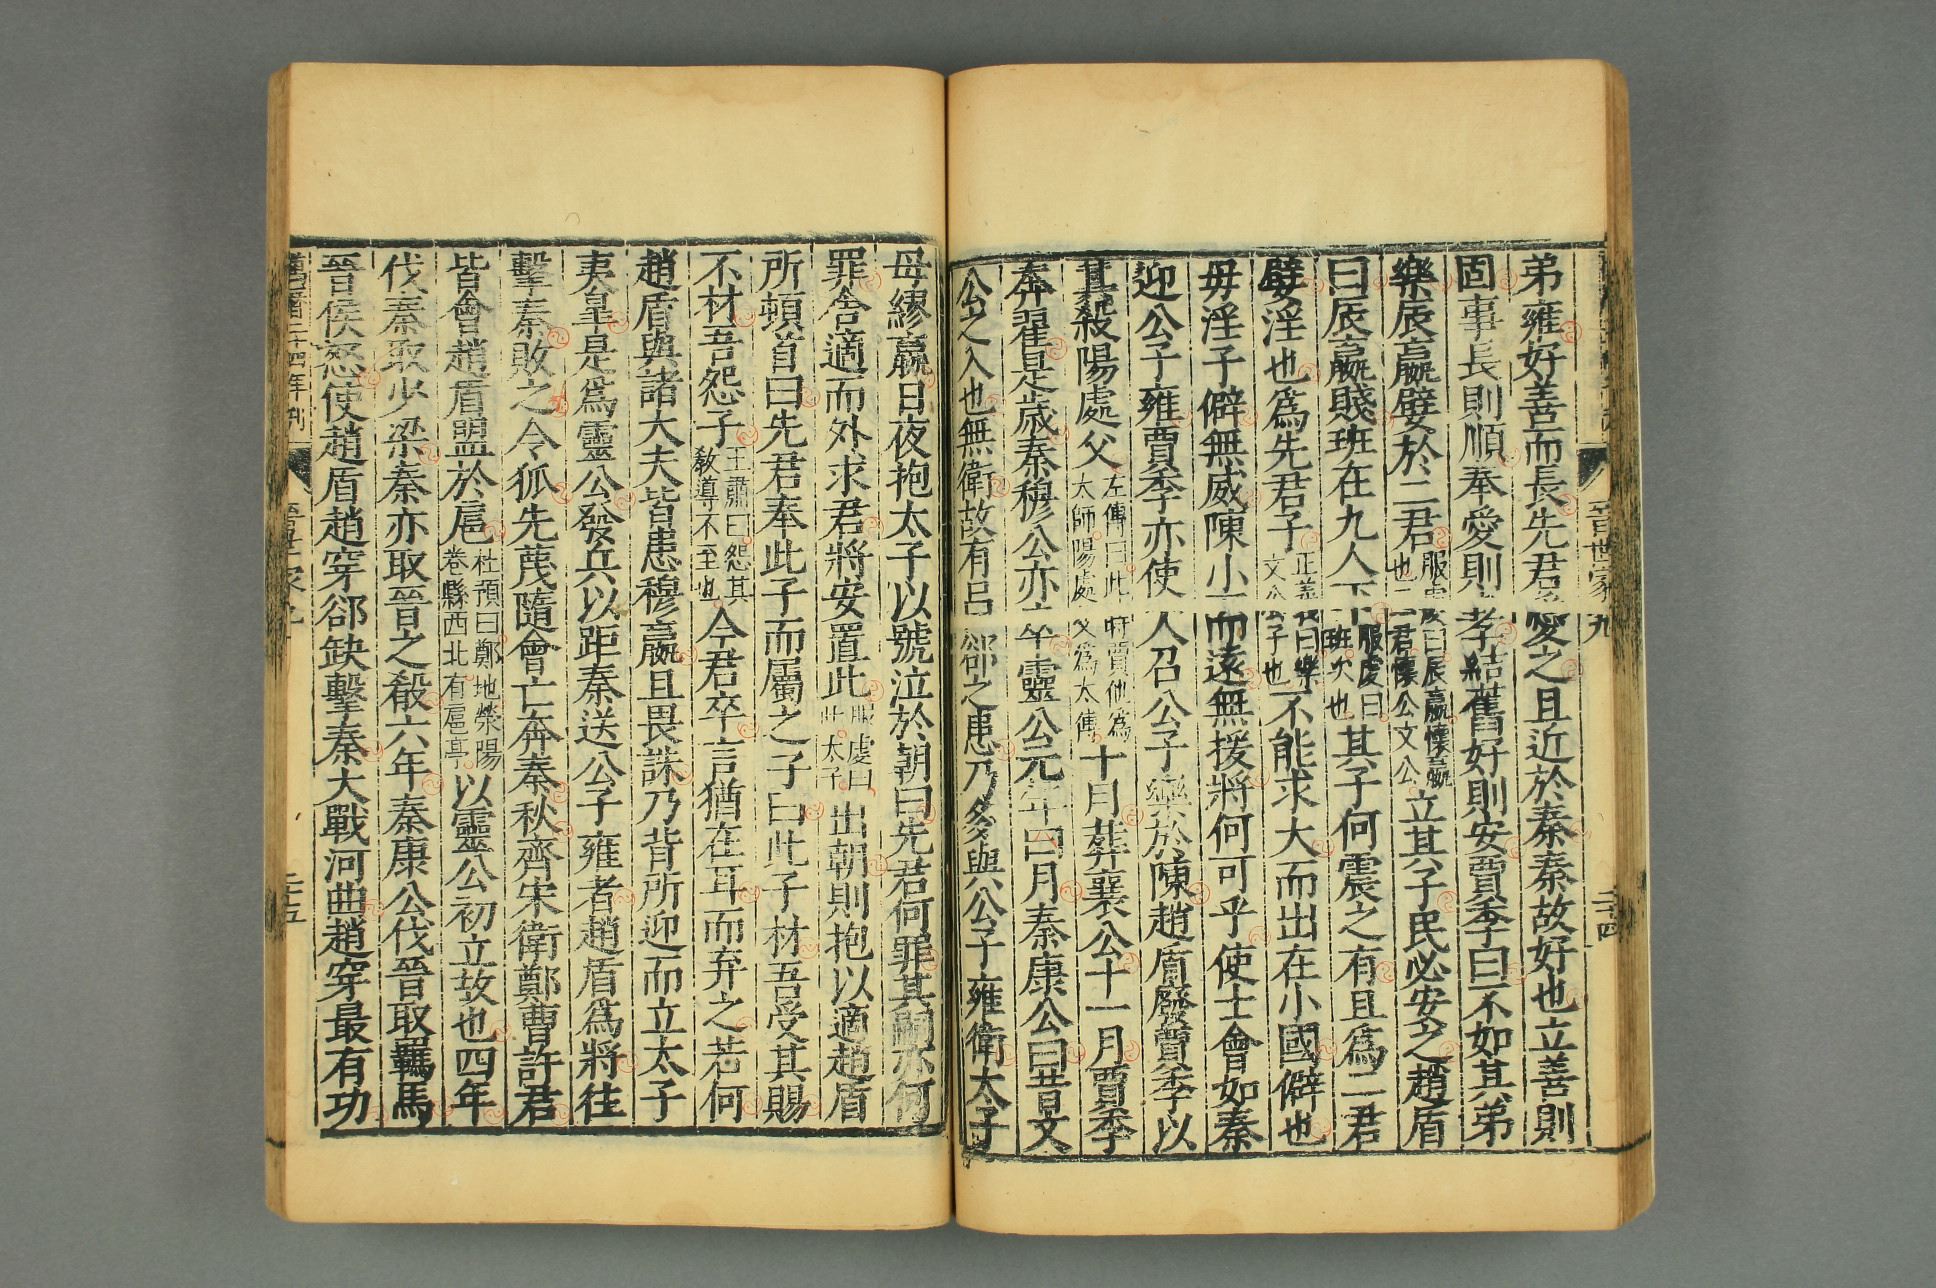 晉世家九
二十四
弟雍好善而長先君愛之且近於秦秦故好也立善則
固事長則順奉愛則孝結舊好則安賈季曰不如其弟
樂辰嬴嬖於二君服虔曰辰嬴懷嬴也二君懷公文公立其子民必安之趙盾
曰辰嬴賤班在九人下服虔曰班次也其子何震之有且爲二君
嬖淫也爲先君子正義曰樂文公子也不能求大而出在小國僻也
毋淫子僻無威陳小而遠無援將何可乎使士會如秦
迎公子雍賈季亦使人召公子樂於陳趙盾廢賈季以
其殺陽處父左傳曰此時賈他爲太師陽處父爲太傅十月葬襄公十一月賈季
奔翟是歲秦穆公亦卒靈公元年四月秦康公曰昔文
公之入也無衛故有呂郤之患乃多與公子雍衛太子
母繆嬴日夜抱太子以號泣於朝曰先君何罪其嗣亦何
罪舍適而外求君將安置此服虔曰此太子出朝則抱以適趙盾
所頓首曰先君奉此子而屬之子曰此子材吾受其賜
不材吾怨子王肅曰怨其教導不至也今君卒言猶在耳而弃之若何
趙盾與諸大夫皆患穆嬴且畏誅乃背所迎而立太子
夷皐是爲靈公發兵以距秦送公子雍者趙盾爲將往
擊秦敗之令狐先蔑隨會亡奔秦秋齊宋衛鄭曹許君
皆會趙盾盟於扈杜預曰鄭地滎陽卷縣西北有扈亭以靈公初立故也四年
伐秦取少梁秦亦取晉之殽六年秦康公伐晉取羈馬
晉侯怒使趙盾趙穿郤缺擊秦大戰河曲趙穿最有功
二十五